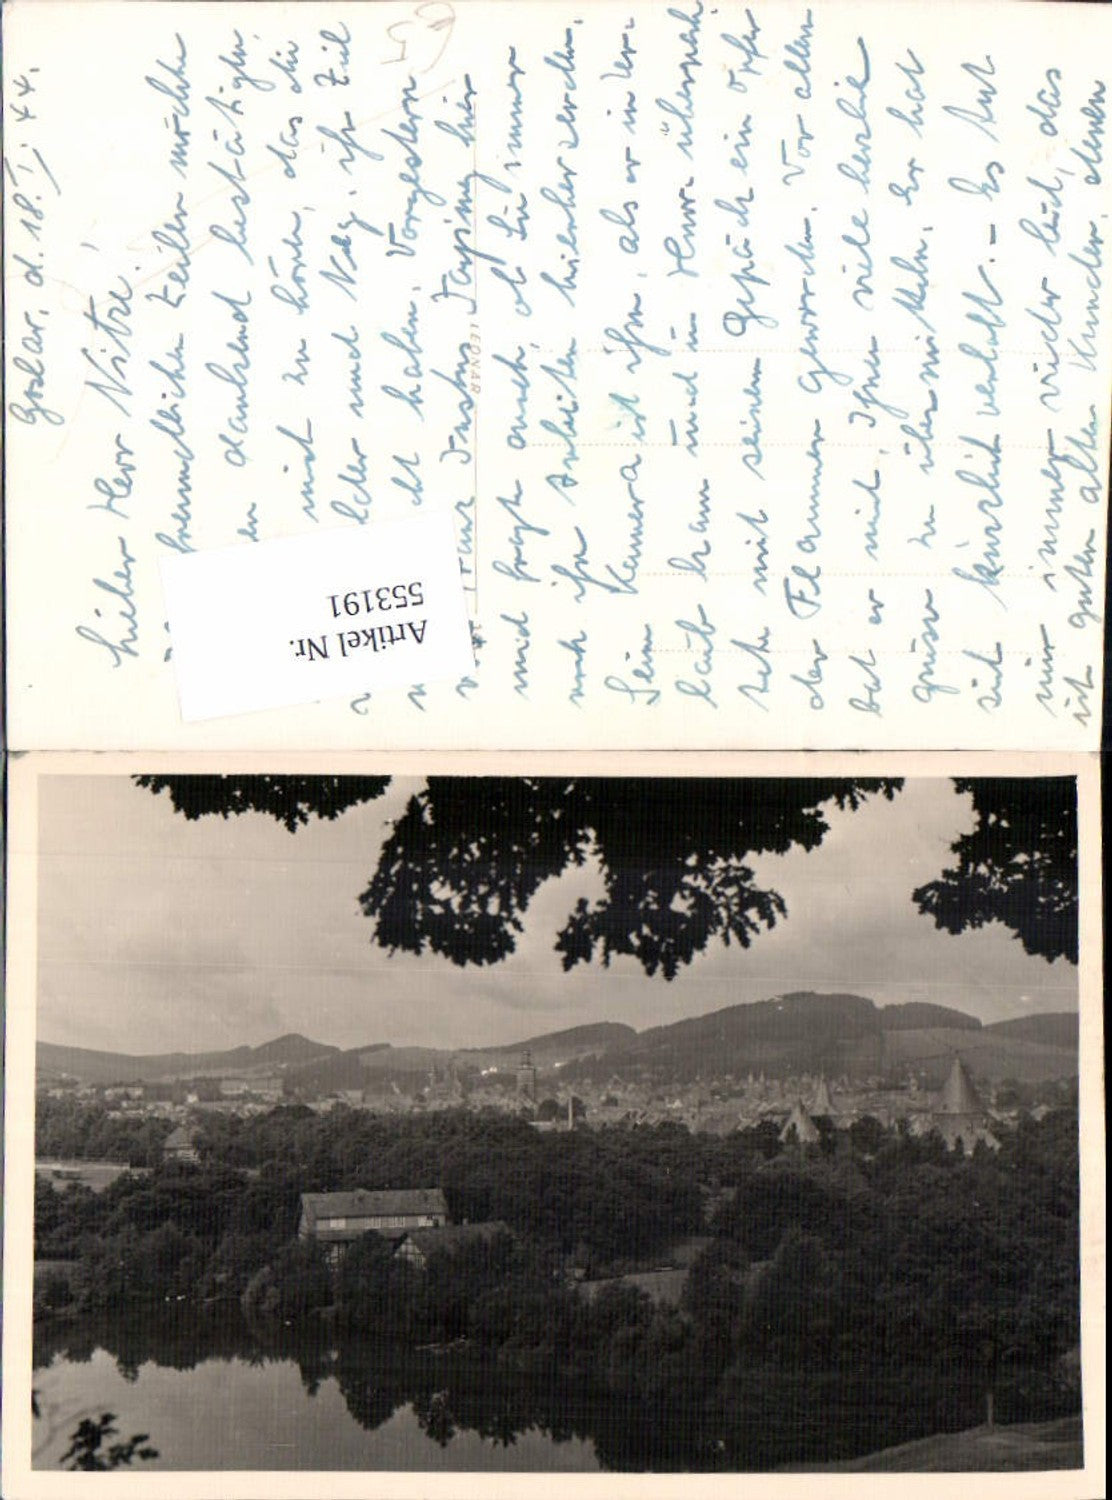 Goslar, d. 18. I. 44.
Lieber Herr Nitze!
freundlichen Zeilen möchte
en dankend bestätigen,
nicht zu hören, das die
lder und Neg. ihr Ziel
cht haben. Vorgestern
hier
und fragt auch, ob Sie immer
noch ihre Arbeiten
Seine Kamera ist ihm, als er in Ur-
laub kam und in
sehe mit seinem Gepäck ein Opfer
der Flammen geworden. Vor allem
bat er mich, Ihnen viele herzliche
Grüsse zu übermitteln. Er hat
sich kürzlich verlobt. - Es tut
mir immer wieder leid, das
ich guten alten Kunden, denen
LEONAR
Artikel Nr.
553191